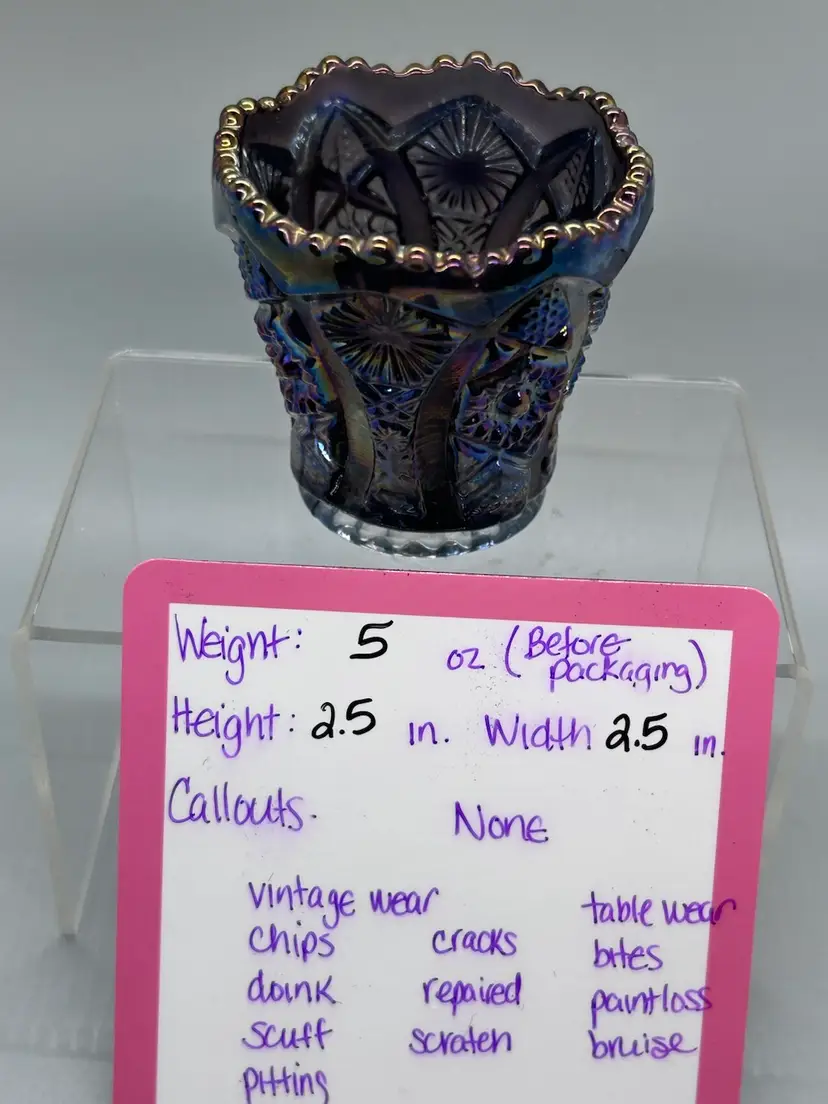 Weight: 5 oz (Before packaging)
Height: 2.5 in. Width 2.5 in.
Callouts. None
vintage wear table wear
chips cracks bites
doink repaired paintloss
scuff scratch bruise
pitting